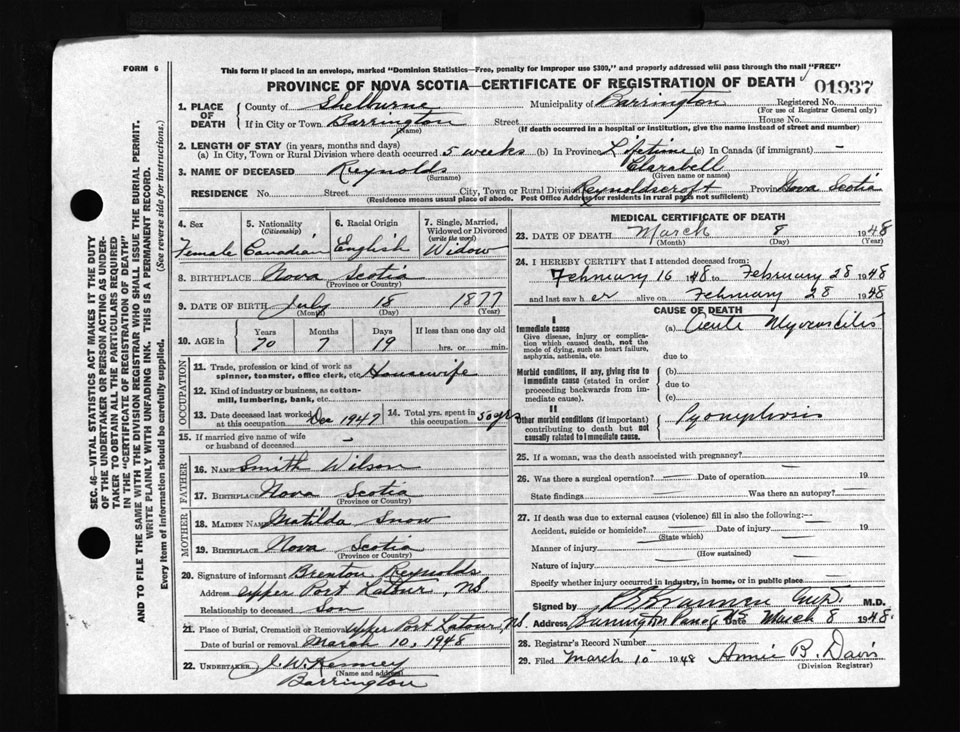 FORM 6
This form if placed in an envelope, marked "Dominion Statistics—Free, penalty for improper use $300," and properly addressed will pass through the mail "FREE"
PROVINCE OF NOVA SCOTIA—CERTIFICATE OF REGISTRATION OF DEATH
01937
1. PLACE OF DEATH
County of Shelburne Municipality of Barrington Registered No.
(For use of Registrar General only)
If in City or Town Barrington Street House No.
(Name) (If death occurred in a hospital or institution, give the name instead of street and number)
2. LENGTH OF STAY (in years, months and days)
(a) In City, Town or Rural Division where death occurred 5 weeks (b) In Province Lifetime (c) In Canada (if immigrant) -
3. NAME OF DECEASED Reynolds Clarabell
(Surname) (Given name or names)
RESIDENCE No. Street City, Town or Rural Division Reynoldscroft Province Nova Scotia
(Residence means usual place of abode. Post Office Address for residents in rural parts not sufficient)
4. Sex Female
5. Nationality (Citizenship) Canadian
6. Racial Origin English
7. Single, Married, Widowed or Divorced (write the word) Widow
8. BIRTHPLACE Nova Scotia
(Province or Country)
9. DATE OF BIRTH July 18 1877
(Month) (Day) (Year)
10. AGE in Years Months Days If less than one day old
70 7 19 hrs. or min.
OCCUPATION
11. Trade, profession or kind of work as spinner, teamster, office clerk, etc. Housewife
12. Kind of industry or business, as cotton-mill, lumbering, bank, etc.
13. Date deceased last worked at this occupation Dec 1947
14. Total yrs. spent in this occupation 50 yrs
15. If married give name of wife or husband of deceased -
FATHER
16. Name Smith Wilson
17. Birthplace Nova Scotia
MOTHER
18. Maiden Name Matilda Snow
19. Birthplace Nova Scotia
(Province or Country)
20. Signature of informant Brenton Reynolds
Address Upper Port Latour, N.S.
Relationship to deceased Son
21. Place of Burial, Cremation or Removal Upper Port Latour, N.S.
Date of burial or removal March 10, 1948
22. Undertaker J. W. Kenney
(Name and address)
Barrington
MEDICAL CERTIFICATE OF DEATH
23. DATE OF DEATH March 8 1948
(Month) (Day) (Year)
24. I HEREBY CERTIFY that I attended deceased from:
February 16 1948 to February 28 1948
and last saw her alive on February 28 1948
CAUSE OF DEATH
I
Immediate cause (a) Acute Myocarditis
Give disease, injury or complication which caused death, not the mode of dying, such as heart failure, asphyxia, asthenia, etc.
due to
Morbid conditions, if any, giving rise to immediate cause (stated in order proceeding backwards from immediate cause).
(b)
due to
(c)
II
Other morbid conditions (if important) contributing to death but not causally related to immediate cause.
Pyonephrosis
25. If a woman, was the death associated with pregnancy?
26. Was there a surgical operation? — Date of operation — 19
State findings — Was there an autopsy? —
27. If death was due to external causes (violence) fill in also the following:—
Accident, suicide or homicide? Date of injury 19
(State which)
Manner of injury
(How sustained)
Nature of injury
Specify whether injury occurred in industry, in home, or in public place
Signed by M.D.
Address Barrington Passage NS Date March 8 1948.
28. Registrar's Record Number
29. Filed March 10 1948 Annie B. Davis
(Division Registrar)
SEC. 46—VITAL STATISTICS ACT MAKES IT THE DUTY
OF THE UNDERTAKER OR PERSON ACTING AS UNDER-
TAKER TO OBTAIN ALL THE PARTICULARS REQUIRED
IN THE "CERTIFICATE OF REGISTRATION OF DEATH"
AND TO FILE THE SAME WITH THE DIVISION REGISTRAR WHO SHALL ISSUE THE BURIAL PERMIT.
WRITE PLAINLY WITH UNFADING INK. THIS IS A PERMANENT RECORD.
Every item of information should be carefully supplied. (See reverse side for instructions.)